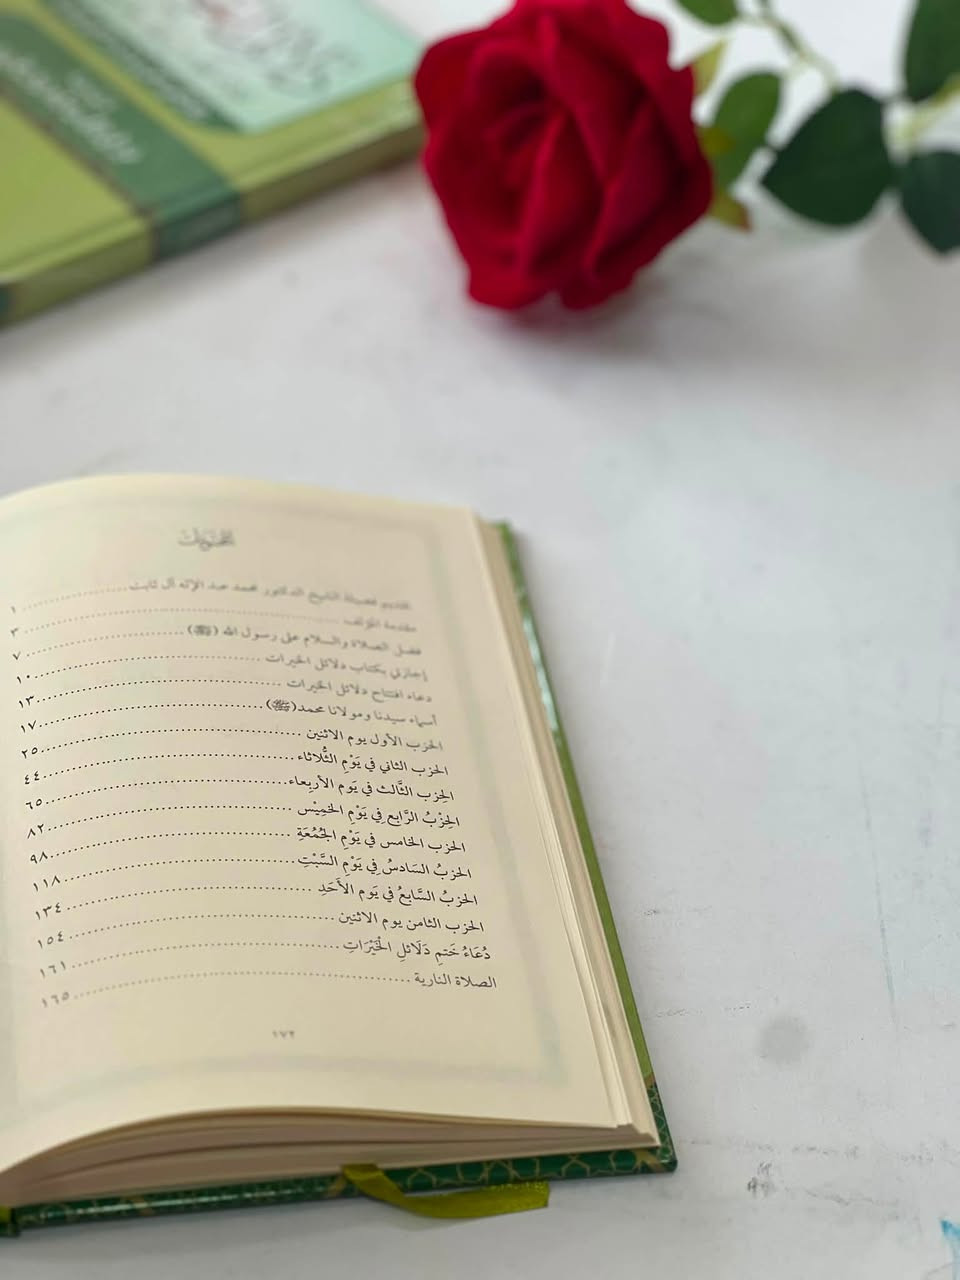 المحتويات
تقديم فضيلة الشيخ الدكتور محمد عبد الإله آل ثابت ..... ١
مقدمة المؤلف ..... ٣
فضل الصلاة والسلام على رسول الله (ﷺ) ..... ٧
إجازتي بكتاب دلائل الخيرات ..... ١٠
دعاء افتتاح دلائل الخيرات ..... ١٣
أسماء سيدنا ومولانا محمد(ﷺ) ..... ١٧
الحزب الأول يوم الاثنين ..... ٢٥
الحزب الثاني في يَوْمِ الثُّلاثاء ..... ٤٤
الحِزب الثَّالث في يَوم الأربِعاء ..... ٦٥
الحِزْبُ الرَّابع فِي يَوْمِ الخَمِيْس ..... ٨٢
الحزب الخامس في يَوْمِ الجُمُعَةِ ..... ٩٨
الحزبُ السَادسُ فِي يَوْمِ السَّبْتِ ..... ١١٨
الحزبُ السَّابعُ في يَوم الأَحَدِ ..... ١٣٤
الحزب الثامن يوم الاثنين ..... ١٥٤
دُعَاءُ خَتمِ دَلَائلِ الْخَيْرَاتِ ..... ١٦١
الصلاة النارية ..... ١٦٥
١٧٢